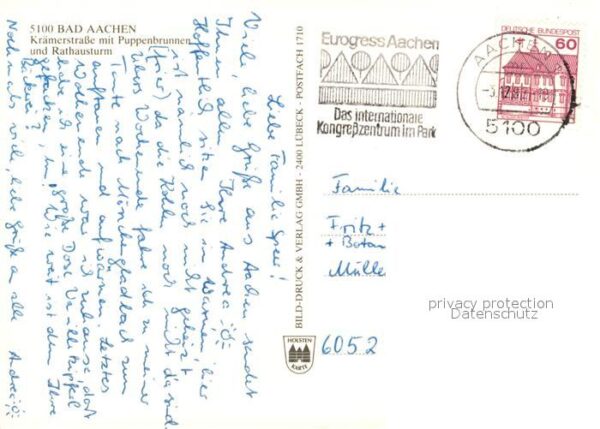 5100 BAD AACHEN
Krämerstraße mit Puppenbrunnen
und Rathausturm
Liebe Familie
Viele liebe Grüße aus Aachen sendet
Ihnen allen Ihre Andrea
Hoffentlich sitzen Sie im Warmen, hier
ist nämlich noch nicht geheizt
(frier) da die Kohlen noch nicht da sind.
Übers Wochenende fahre ich zu meiner
Tante nach Mönchengladbach zum
auftauen und aufwärmen. Letztes
Wochenende war ich zuhause, dort
habe ich eine große Dose Vanillekipferl
gebacken, Wie weit ist denn Ihre
Nochmals viele, liebe Grüße an alle Andrea
BILD-DRUCK & VERLAG GMBH - 2400 LÜBECK - POSTFACH 1710
HOLSTEN
KARTE
Eurogress Aachen
Das internationale
Kongreßzentrum im Park
AACHEN
5100
DEUTSCHE BUNDESPOST
60
Familie
Fritz +
Müller
6052
privacy protection
Datenschutz